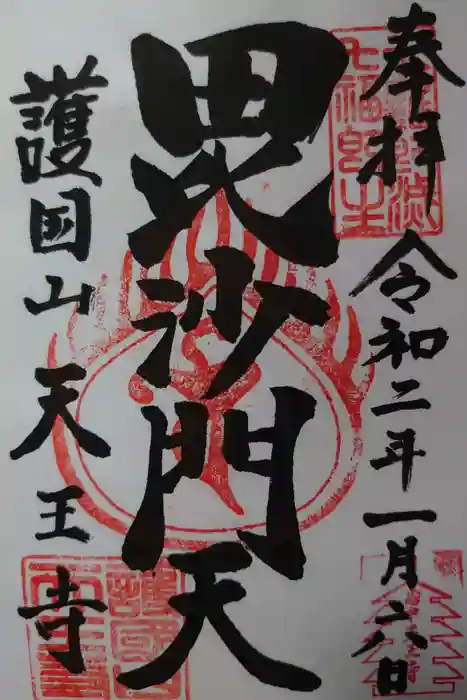 奉拝 令和二年一月六日
毘沙門天
護国山 天王寺